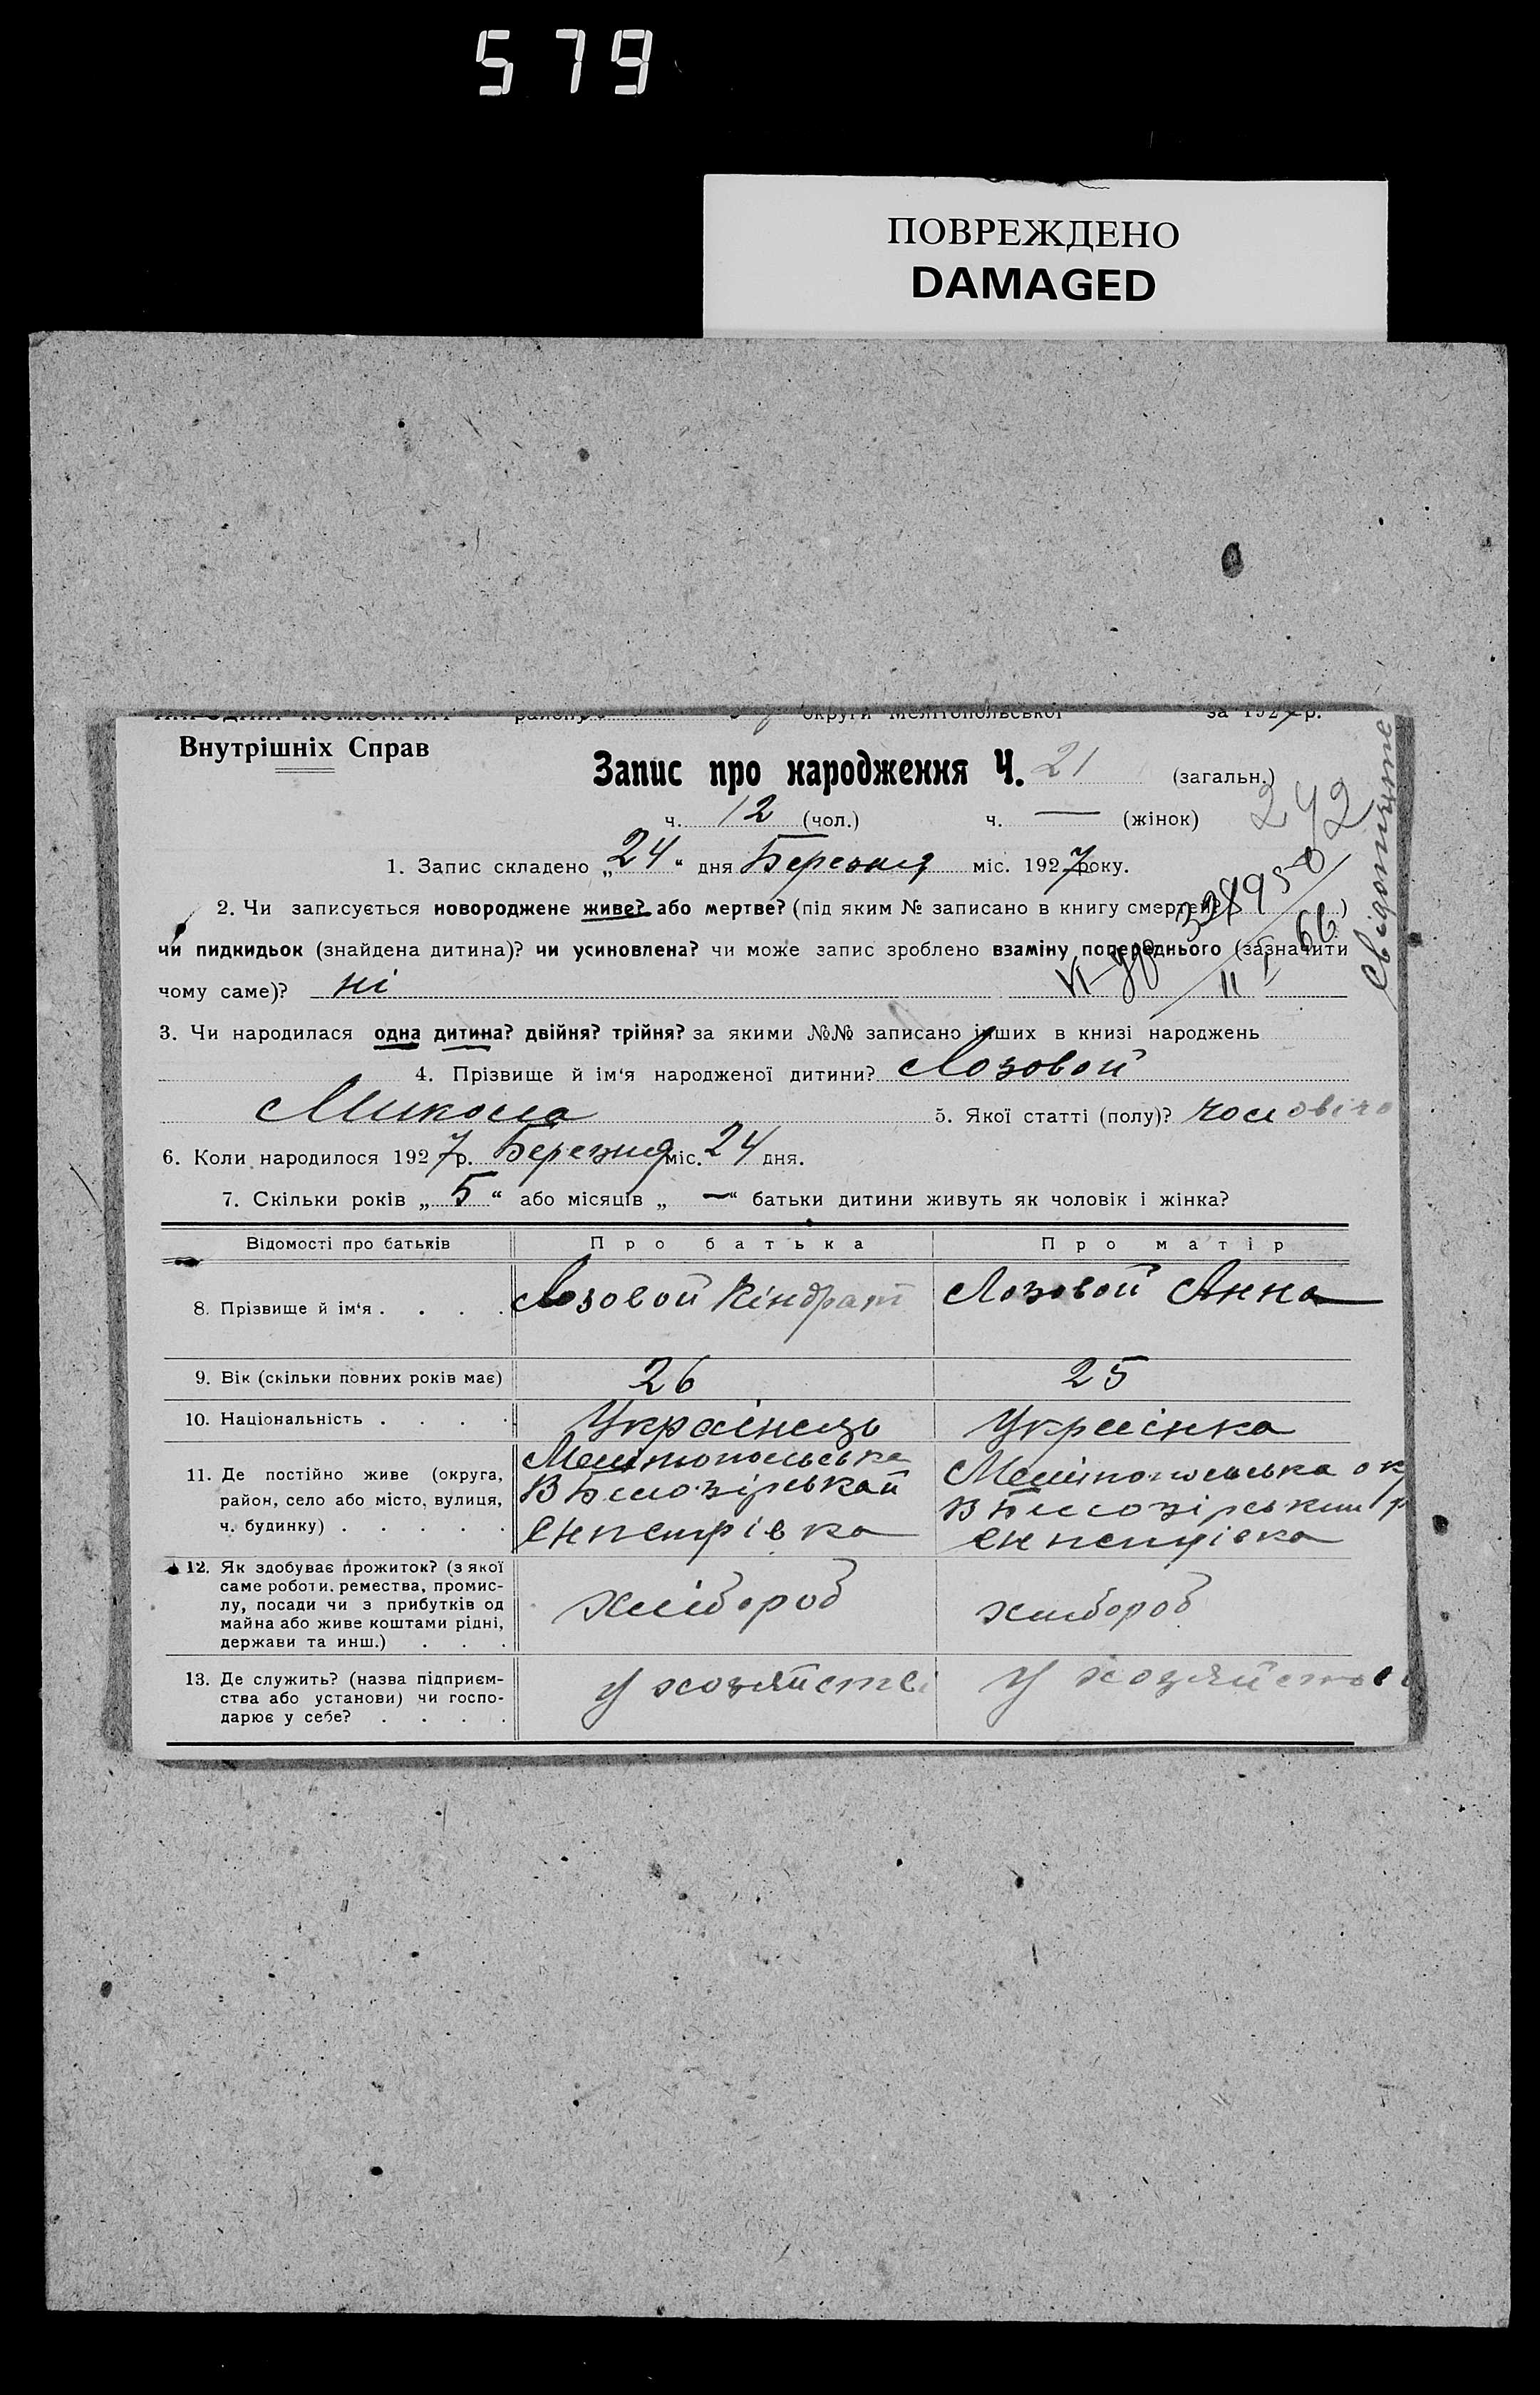 579
ПОВРЕЖДЕНО
DAMAGED
округи Мелітопольської за 1927 р.
Внутрішніх Справ
Запис про народження Ч. 21 (загальн.)
242
ч. 12 (чол.) ч. — (жінок)
1. Запис складено „24“ дня Березня міс. 1927 року.
2. Чи записується новороджене живе? або мертве? (під яким № записано в книгу смертей?)
чи пидкидьок (знайдена дитина)? чи усиновлена? чи може запис зроблено взаміну попереднього (зазначити
чому саме)? ні
3. Чи народилася одна дитина? двійня? трійня? за якими №№ записано інших в книзі народжень
4. Прізвище й ім‘я народженої дитини? Лозовой
Микола 5. Якої статті (полу)? чоловічо
6. Коли народилося 1927 р. Березня міс. 24 дня.
7. Скільки років „5“ або місяців „—“ батьки дитини живуть як чоловік і жінка?
Відомості про батьків Про батька Про матір
8. Прізвище й ім‘я . . . . Лозовой Кіндрат Лозовой Анна
9. Вік (скільки повних років має) 26 25
10. Національність . . . . Украінець Украінка
11. Де постійно живе (округа,
район, село або місто, вулиця,
ч. будинку) . . . . .
Мелітопольська
В Білозірськай
Єнпетрівка
Мелітопольська ок
В Білозірським р
Єнпетрівка
12. Як здобуває прожиток? (з якої
саме роботи, ремества, промис-
лу, посади чи з прибутків од
майна або живе коштами рідні,
держави та инш.) . . .
хлібороб
хлібороб
13. Де служить? (назва підприєм-
ства або установи) чи госпо-
дарює у себе? . . . .
у хозяйстві
у хозяйстві